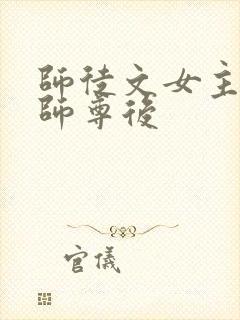 師徒文女主
師尊後
官儀